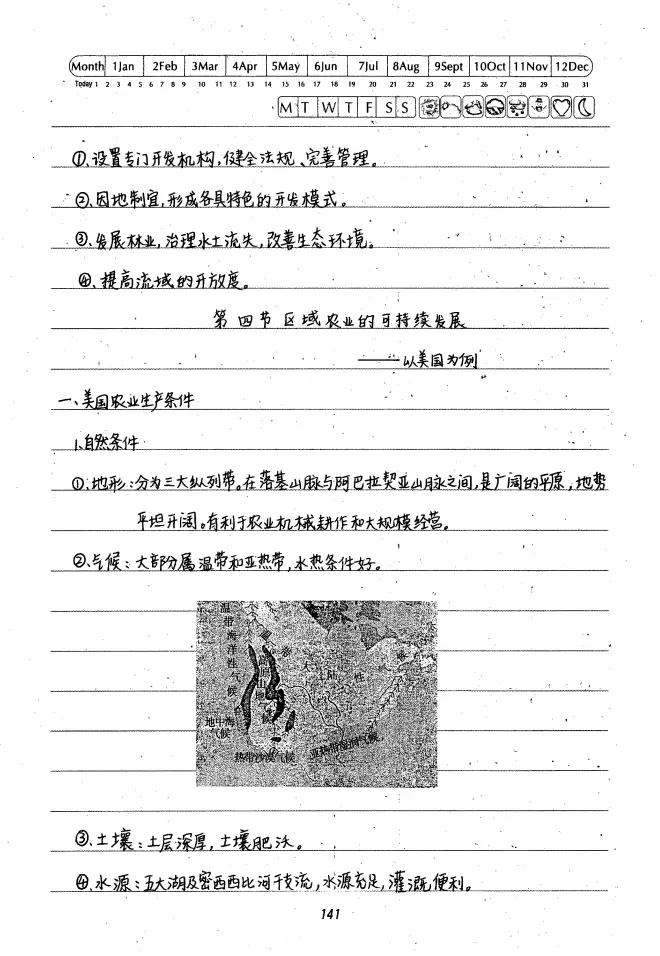 Month 1Jan 2Feb 3Mar 4Apr 5May 6Jun 7Jul 8Aug 9Sept 10Oct 11Nov 12Dec
Today 1 2 3 4 5 6 7 8 9 10 11 12 13 14 15 16 17 18 19 20 21 22 23 24 25 26 27 28 29 30 31
M T W T F S S
①、设置专门开发机构,健全法规、完善管理。
②、因地制宜,形成各具特色的开发模式。
③、发展林业,治理水土流失,改善生态环境。
④、提高流域的开放度。
第四节 区域农业的可持续发展
——以美国为例
一、美国农业生产条件
1、自然条件
①、地形:分为三大纵列带。在落基山脉与阿巴拉契亚山脉之间,是广阔的平原,地势
平坦开阔。有利于农业机械耕作和大规模经营。
②、气候:大部分属温带和亚热带,水热条件好。
温带海洋性气候
地中海气候
热带沙漠气候
亚热带湿润气候
③、土壤:土层深厚,土壤肥沃。
④、水源:五大湖及密西西比河干支流,水源充足,灌溉便利。
141